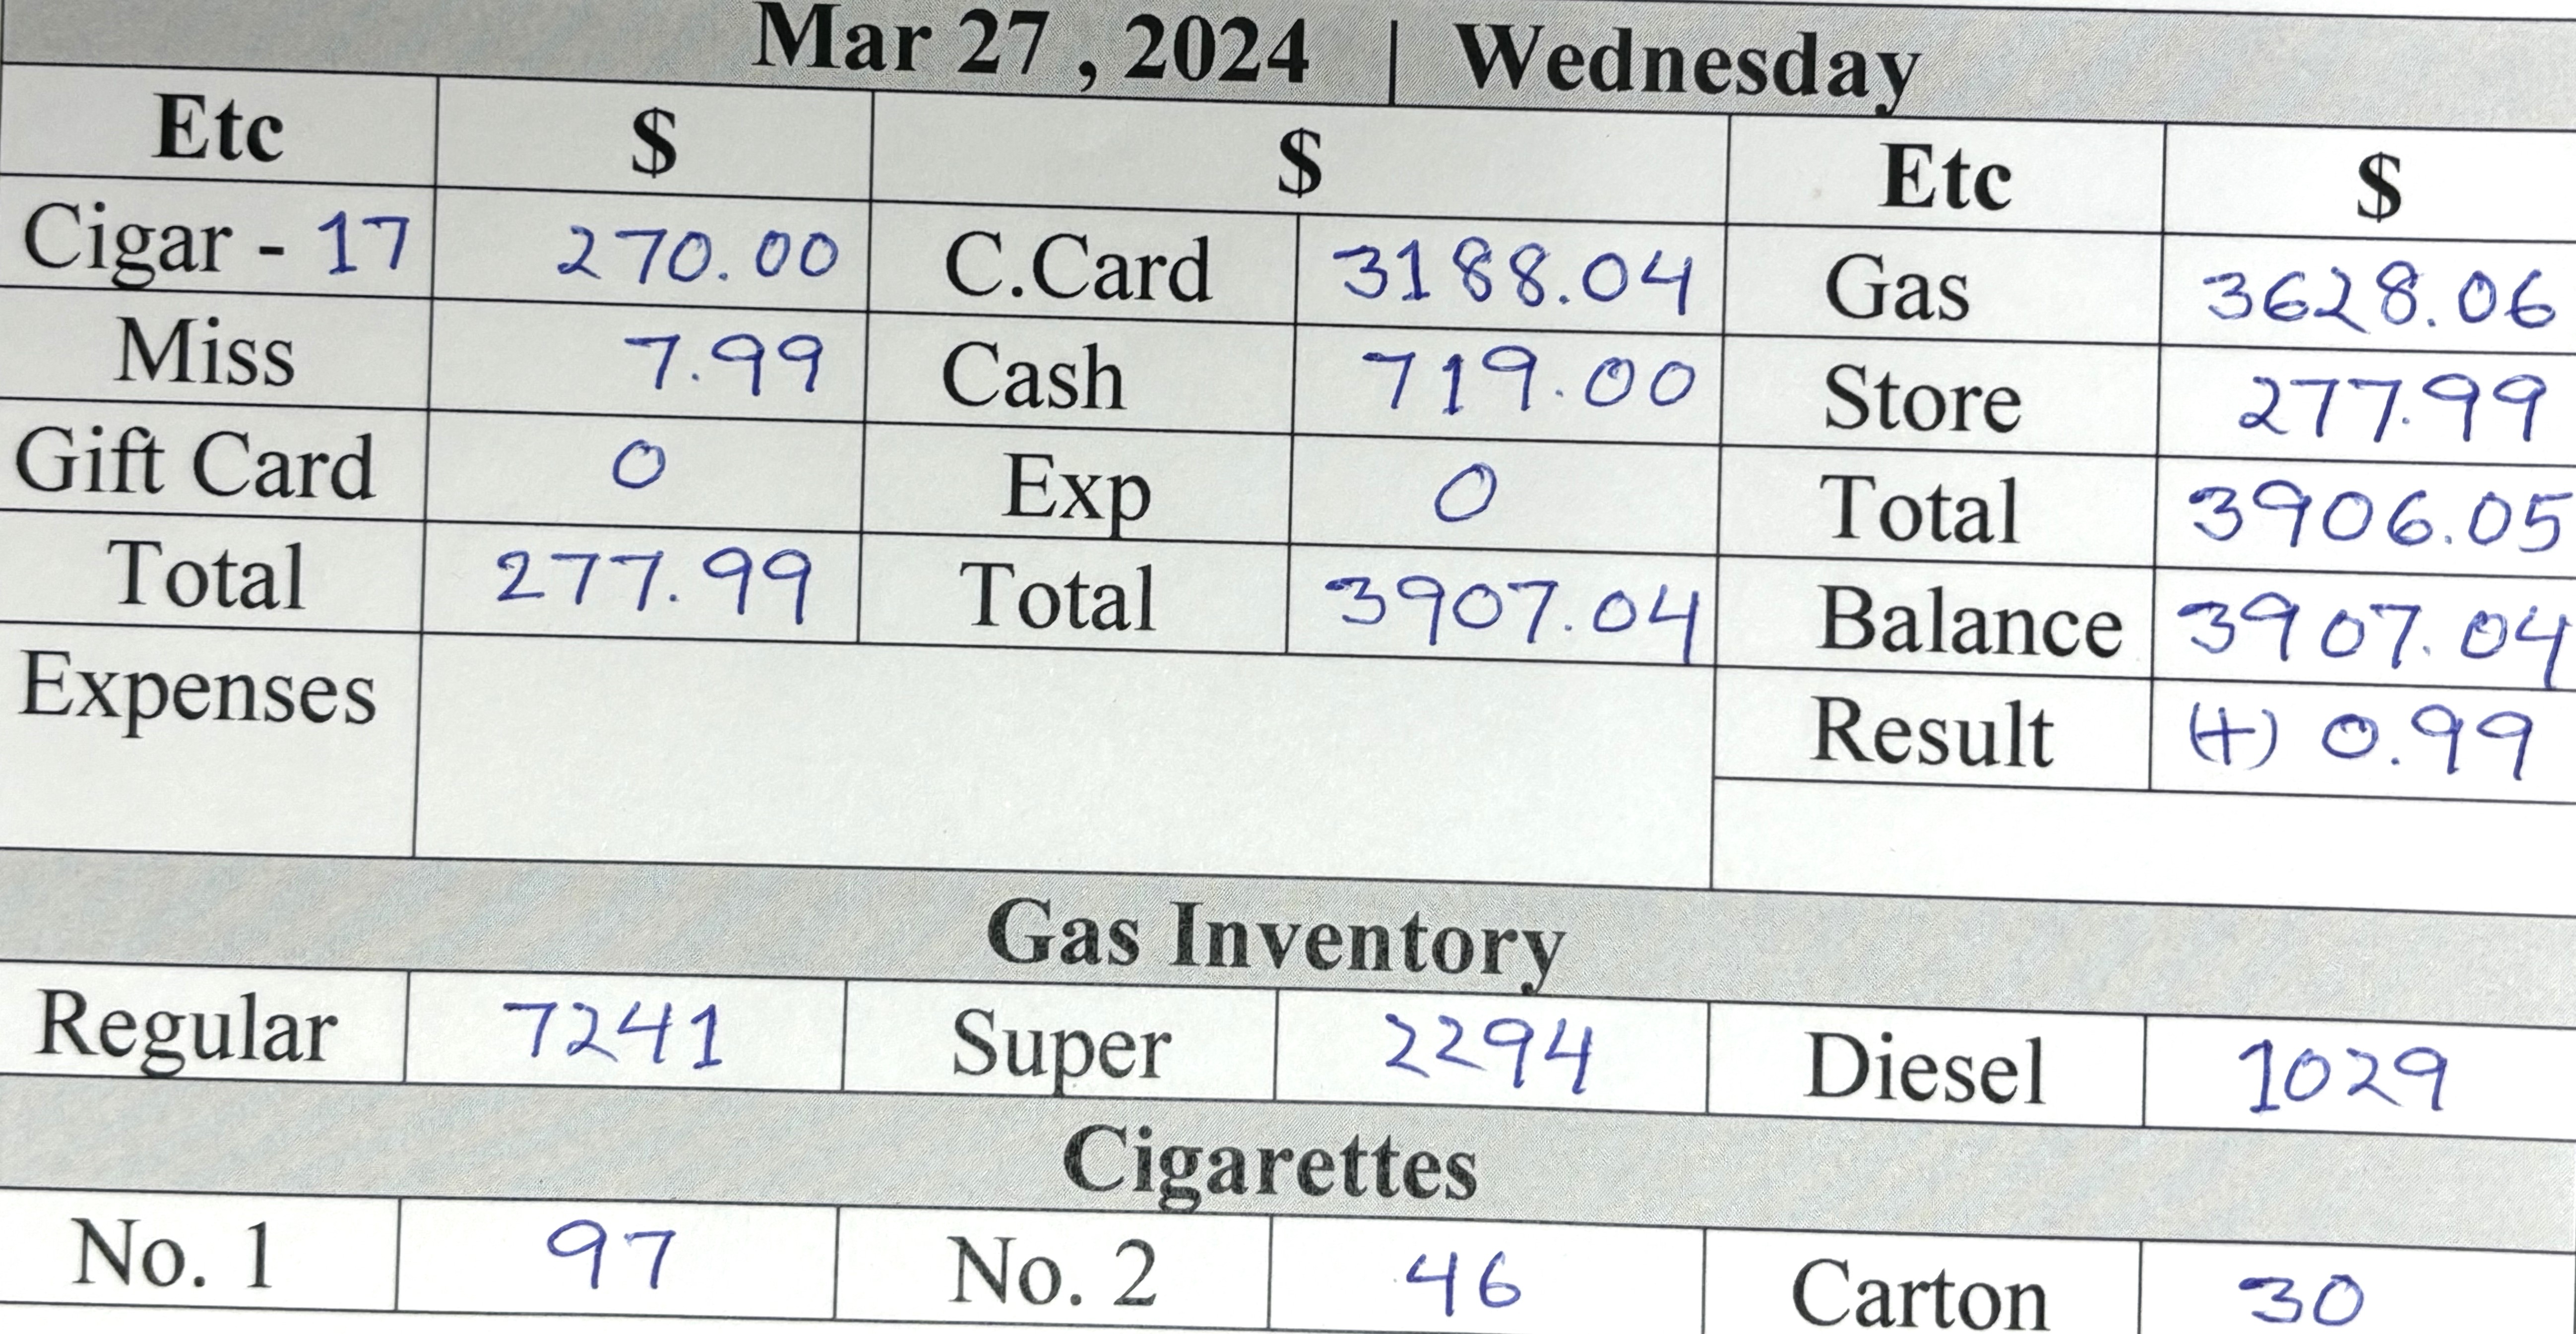 Mar 27 , 2024 | Wednesday
Etc $ $ Etc $
Cigar - 17 270.00 C.Card 3188.04 Gas 3628.06
Miss 7.99 Cash 719.00 Store 277.99
Gift Card 0 Exp 0 Total 3906.05
Total 277.99 Total 3907.04 Balance 3907.04
Expenses Result (+) 0.99
Gas Inventory
Regular 7241 Super 2294 Diesel 1029
Cigarettes
No. 1 97 No. 2 46 Carton 30